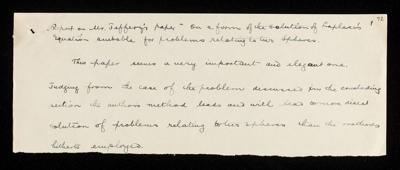 72
Report on Mr. Jeffery's Paper "On a form of the solution of Laplace's
Equation suitable for problems relating to two spheres.
This paper seems a very important and elegant one.
Judging from the case of the problem discussed in the concluding
section the authors method leads and will lead to more direct
solution of problems relating to two spheres than the methods
hitherto employed.